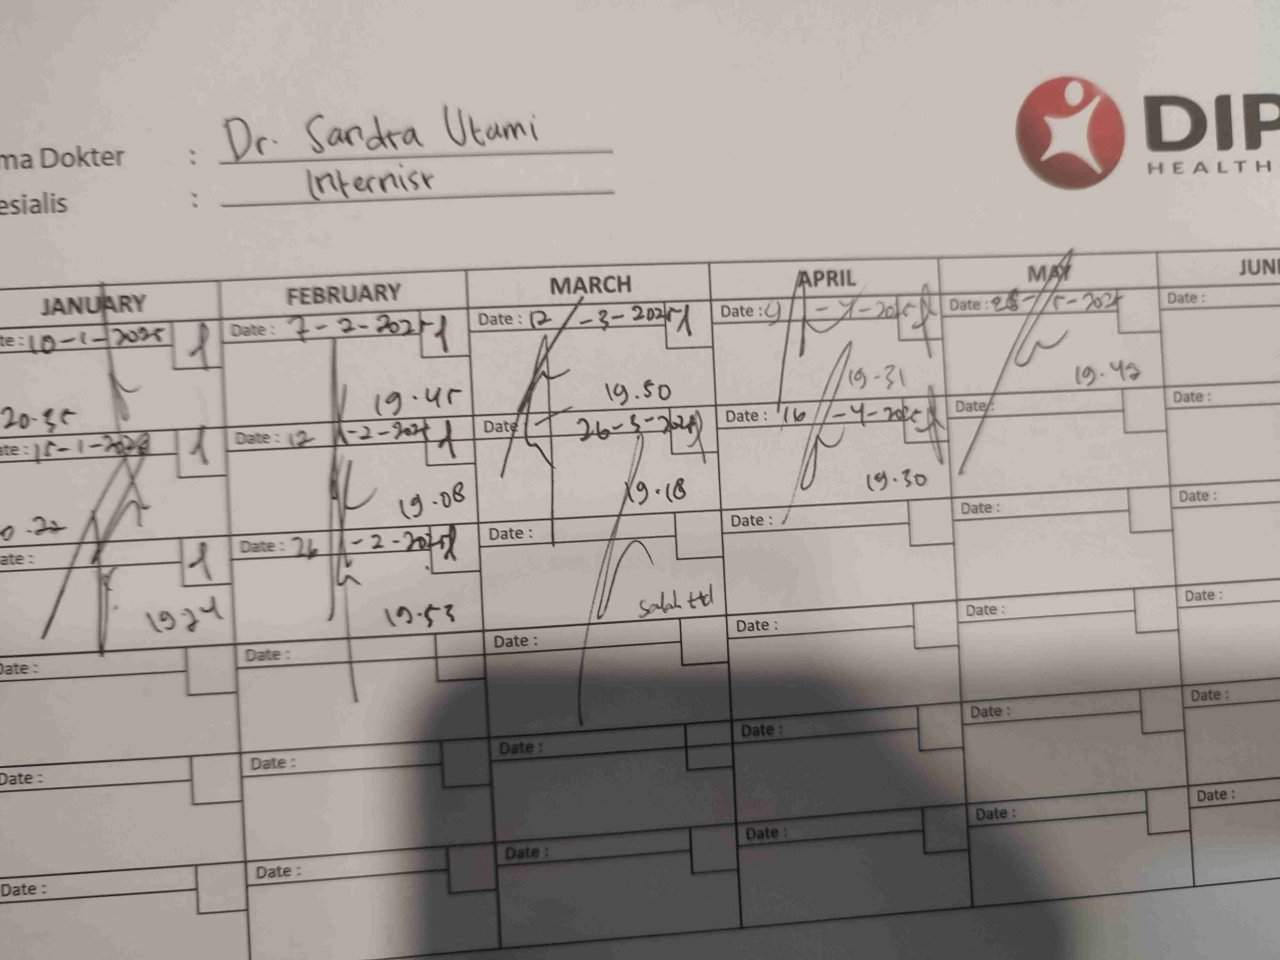 ma Dokter : Dr. Sandra Utami
esialis : Internist
DIP
HEALTH
JANUARY FEBRUARY MARCH APRIL MAY JUN
te: 10-1-2025 1 Date: 7-2-2025 1 Date: 12-3-2025 1 Date: -4-2025 1 Date: 28-5-2025 Date:
20.35 19.45 19.50 19.31 19.42
te: 15-1-2025 1 Date: 12-2-2025 1 Date: 26-3-2025 Date: 16-4-2025 1 Date: Date:
0.22 19.08 19.18 19.30
ate: 1 Date: 26-2-2025 1 Date: Date: Date: Date:
19.24 19.53 Salah ttd
Date: Date: Date: Date: Date: Date:
Date: Date: Date: Date: Date: Date:
Date: Date: Date: Date: Date: Date: